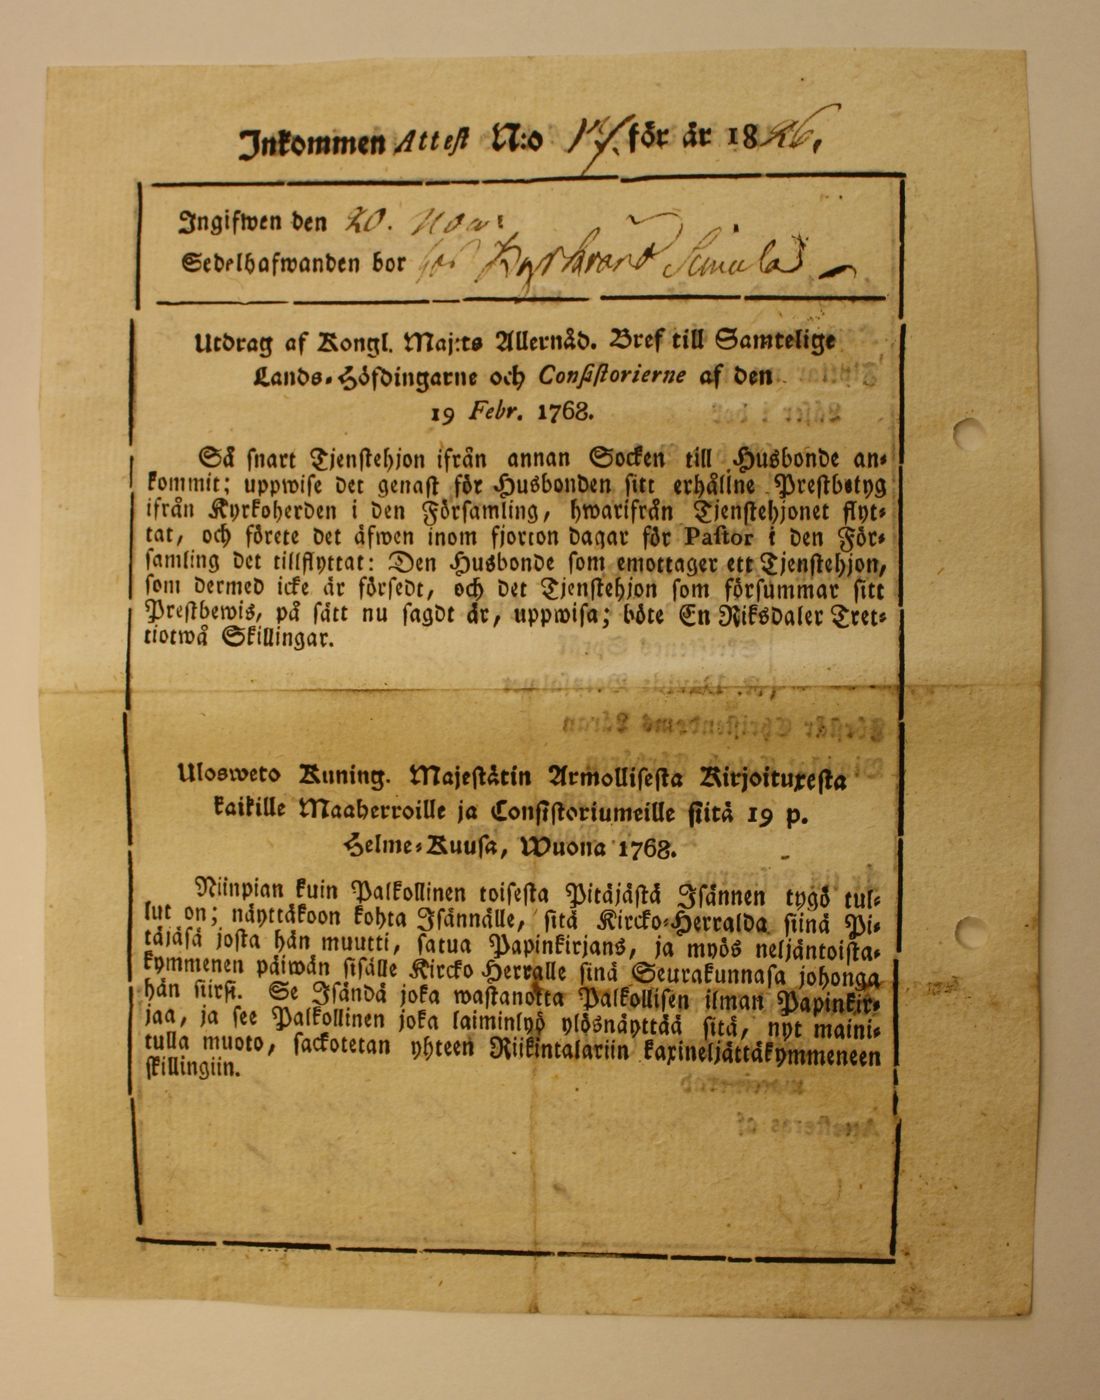 Inkommen Attest N:o 17. för år 1826.
Ingifwen den 20. Nov:
Sedelhafwanden bor hos Kyrkvärd Simula
Utdrag af Kongl. Maj:ts Allernåd. Bref till Samtelige
Lands-Höfdingarne och Consistorierne af den
19 Febr. 1768.
Så snart Tjenstehjon ifrån annan Socken till Husbonde an-
kommit; uppwise det genast för Husbonden sitt erhållne Prestbetyg
ifrån Kyrkoherden i den Församling, hwarifrån Tjenstehjonet flyt-
tat, och förete det äfwen inom fjorton dagar för Pastor i den För-
samling det tillflyttat: Den Husbonde som emottager ett Tjenstehjon,
som dermed icke är försedt, och det Tjenstehjon som försummar sitt
Prestbewis, på sätt nu sagdt är, uppwisa; böte En Riksdaler Tret-
tiotwå Skillingar.
Ulosweto Kuning. Majestätin Armollisesta Kirjoituxesta
kaikille Maaherroille ja Consistoriumeille siitä 19 p.
Helme-Kuusa, Wuona 1768.
Niinpian kuin Palkollinen toisesta Pitäjästä Isännen tygö tul-
lut on; näyttäkoon kohta Isännälle, sitä Kircko-Herralda siinä Pi-
täjäsä josta hän muutti, satua Papinkirjans, ja myös neljäntoista-
kymmenen päiwän sisälle Kircko Herralle sinä Seurakunnasa johonga
hän siirsi. Se Isändä joka wastanotta Palkollisen ilman Papinkir-
jaa, ja see Palkollinen joka laiminlyö ylösnäyttää sitä, nyt maini-
tulla muoto, sackotetan yhteen Riikintalariin kaxineljättäkymmeneen
skillingiin.